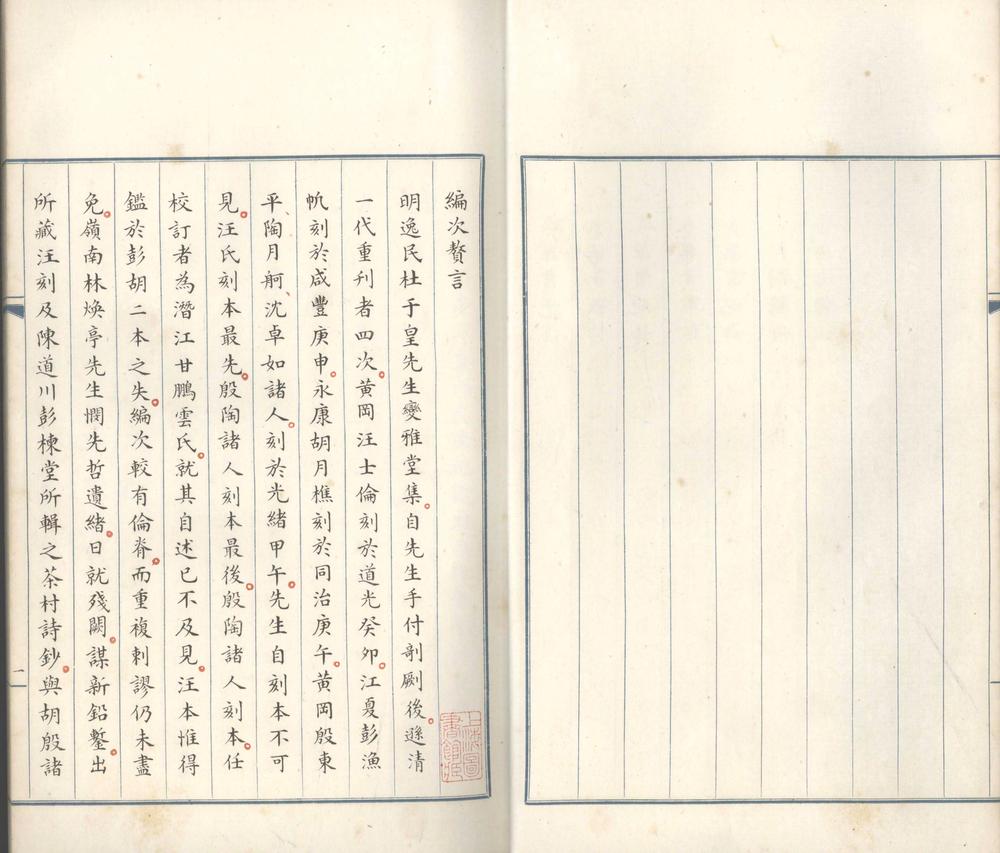 編次贅言
明逸民杜于皇先生變雅堂集。自先生手付剞劂後。遜清
一代重刊者四次。黃岡汪士倫刻於道光癸卯。江夏彭漁
帆刻於咸豐庚申。永康胡月樵刻於同治庚午。黃岡殷東
平、陶月舸、沈卓如諸人。刻於光緒甲午。先生自刻本不可
見。汪氏刻本最先。殷陶諸人刻本最後。殷陶諸人刻本。任
校訂者為潛江甘鵬雲氏。就其自述已不及見。汪本惟得
鑑於彭胡二本之失。編次較有倫脊。而重複剌謬仍未盡
免。嶺南林煥亭先生憫先哲遺緒。日就殘闕。謀新鉛槧。出
所藏汪刻及陳道川彭棟堂所輯之茶村詩鈔。與胡殷諸
一
上海圖書館藏